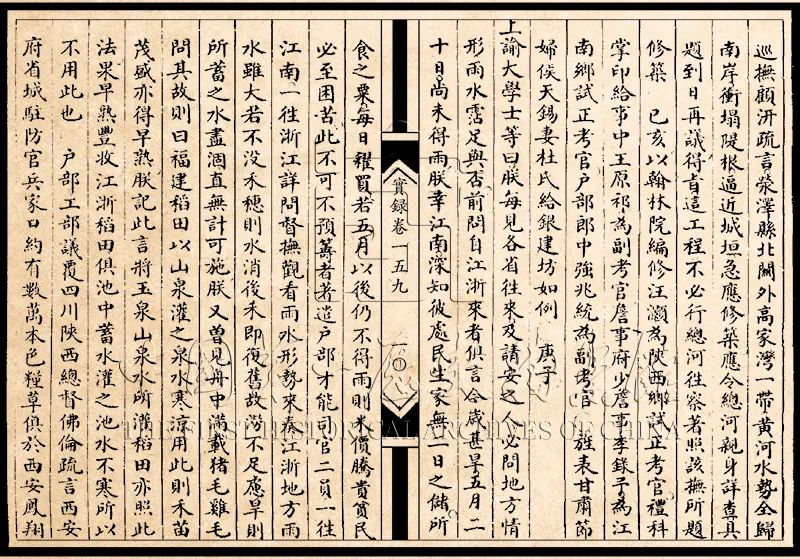 巡撫顧汧疏言滎澤縣北關外高家灣一帶黃河水勢全歸
南岸衝塌隄根逼近城垣急應修築應令總河親身詳查具
題到日再議得旨這工程不必行總河徃察著照該撫所題
修築　己亥以翰林院編修汪灝為陝西鄉試正考官禮科
掌印給事中王原祁為副考官詹事府少詹事李錄予為江
南鄉試正考官戶部郎中強兆統為副考官　旌表甘肅節
婦侯天錫妻杜氏給銀建坊如例　庚子
上諭大學士等曰朕每見各省徃來及請安之人必問地方情
形雨水霑足與否前問自江浙來者俱言今歲甚旱五月二
十日尚未得雨朕幸江南深知彼處民生家無一日之儲所
實録卷一五九
一〇
食之粟每日糴買若五月以後仍不得雨則米價騰貴貧民
必至困苦此不可不預籌者著遣戶部才能司官二員一徃
江南一徃浙江詳問督撫觀看雨水形勢來奏江浙地方雨
水雖大若不没禾穗則水消後禾即復舊故澇不足慮旱則
所蓄之水盡涸直無計可施朕又曾見舟中滿載猪毛雞毛
問其故則曰福建稻田以山泉灌之泉水寒涼用此則禾苗
茂盛亦得早熟朕記此言將玉泉山泉水所灌稻田亦照此
法果早熟豐收江浙稻田俱池中蓄水灌之池水不寒所以
不用此也　戶部工部議覆四川陝西總督佛倫疏言西安
府省城駐防官兵家口約有數萬本色糧草俱於西安鳳翔
中國第一歷史檔案館
THE FIRST HISTORICAL ARCHIVES OF CHINA